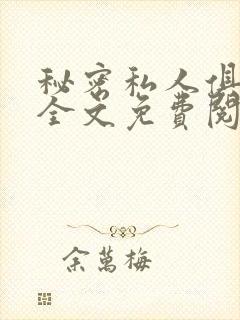 秘密私人俱
全文免費閱
余萬梅